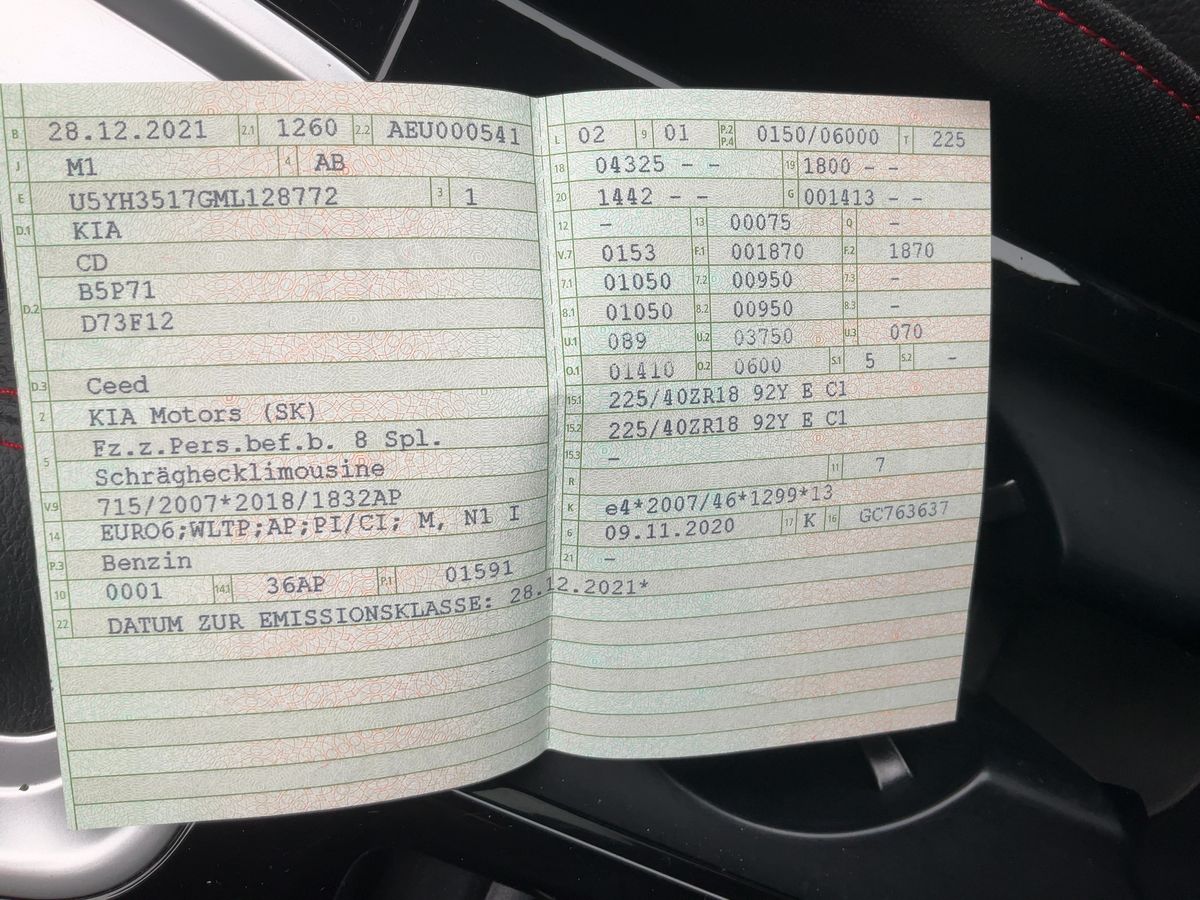 B 28.12.2021 2.1 1260 2.2 AEU000541
J M1 4 AB
E U5YH3517GML128772 3 1
D.1 KIA
CD
D.2 B5P71
D73F12
D.3 Ceed
2 KIA Motors (SK)
5 Fz.z.Pers.bef.b. 8 Spl.
Schräghecklimousine
V.9 715/2007*2018/1832AP
14 EURO6;WLTP;AP;PI/CI; M, N1 I
P.3 Benzin
10 0001 14.1 36AP P.1 01591
22 DATUM ZUR EMISSIONSKLASSE: 28.12.2021*
L 02 9 01 P.2 P.4 0150/06000 T 225
18 04325 - - 19 1800 - -
20 1442 - - G 001413 - -
12 - 13 00075 Q -
V.7 0153 F.1 001870 F.2 1870
7.1 01050 7.2 00950 7.3 -
8.1 01050 8.2 00950 8.3 -
U.1 089 U.2 03750 U.3 070
O.1 01410 O.2 0600 S.1 5 S.2 -
15.1 225/40ZR18 92Y E C1
15.2 225/40ZR18 92Y E C1
15.3 -
R 11 7
K e4*2007/46*1299*13
6 09.11.2020 17 K 16 GC763637
21 -